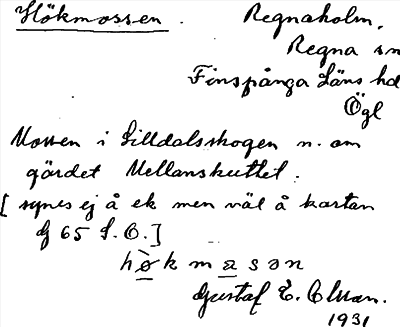 Hökmossen. Regnaholm,
Regna sn
Finspånga Läns hd
Ögl
Mossen i Lilldalsskogen n. om
gärdet Mellanskuttet.
[synes ej å ek men väl å kartan
J 65 S.O.]
hø̀kmasən
Gustaf E. Olsson.
1931